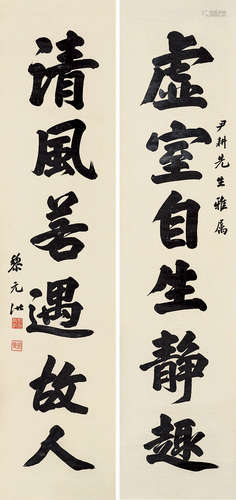 虛室自生靜趣
尹耕先生雅属
清風若遇故人
黎元洪